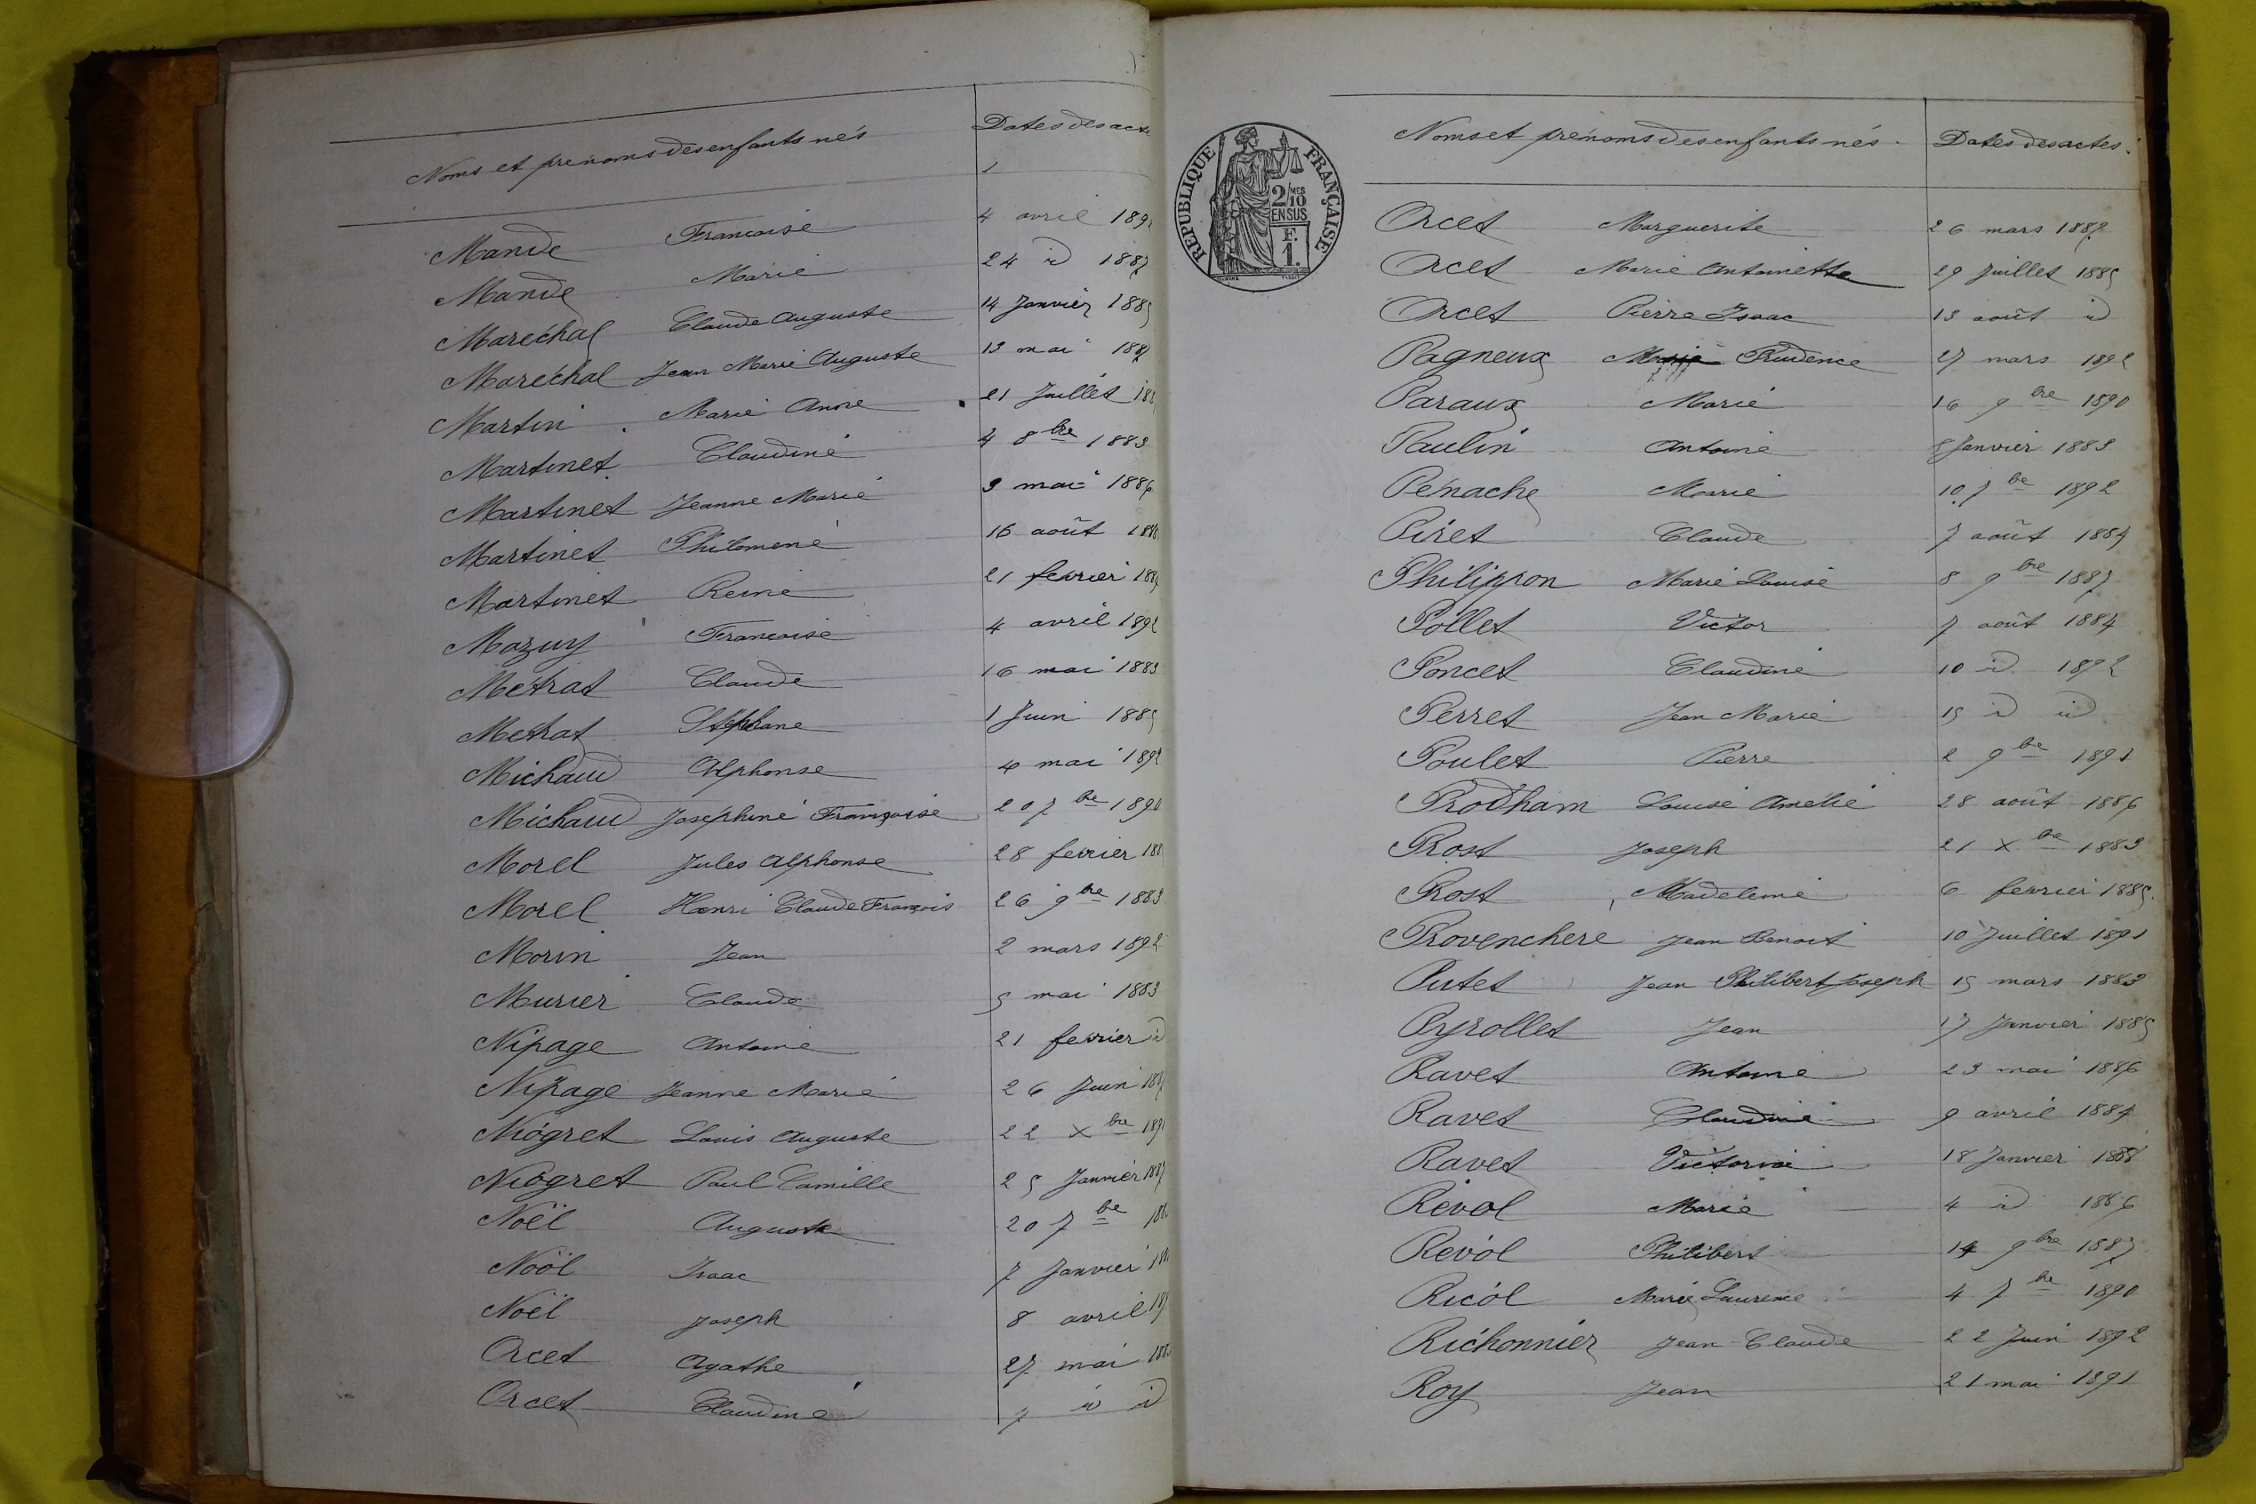 Noms et prénoms des enfants nés
Dates des acte
Mande Francoise 4 avril 189
Mande Marie 24 id 1887
Maréchal Claude Auguste 14 Janvier 1885
Maréchal Jean Marie Auguste 13 mai 188
Martin Marie Anne 21 Juillet 188
Martinet Claudine 4 8bre 1883
Martinet Jeanne Marie 3 mai 1886
Martinet Philomene 16 août 188
Martinet Reine 21 fevrier 188
Mazuy Francoise 4 avril 1892
Métrat Claude 16 mai 1883
Metrat Stéphane 1 Juin 1885
Michaud Alphonse 4 mai 189
Michaud Joséphine Françoise 20 7bre 1890
Morel Jules Alphonse 28 fevrier 188
Morel Henri Claude François 26 9bre 1883
Morin Jean 2 mars 1892
Murier Claude 5 mai 1883
Nipage Antoine 21 fevrier id
Nipage Jeanne Marie 26 Juin 188
Niogret Louis Auguste 22 Xbre 189
Niogret Paul Camille 25 Janvier 1887
Noël Auguste 20 7bre 188
Noël Isaac 7 Janvier
Noël Joseph 8 avril
Orcet Agathe 27 mai 188
Orcet Claudine 7 id id
REPUBLIQUE FRANÇAISE
2/10 MES
EN SUS
F.
1.
Noms et prénoms des enfants nés. Dates des actes.
Orcet Marguerite 26 mars 1887
Orcet Marie Antoinette 29 Juillet 1885
Orcet Pierre Isaac 13 août id
Pagneux Marie Prudence 27 mars 1892
Paraux Marie 16 9bre 1890
Paulin Antoine 8 Janvier 1883
Pénache Marie 10 7bre 1892
Piret Claude 7 août 1884
Philippon Marie Louise 8 9bre 1887
Pollet Victor 7 août 1884
Poncet Claudine 10 id 1892
Perret Jean Marie 15 id id
Poulet Pierre 2 9bre 1891
Prodham Louise Amélie 28 août 1886
Prost Joseph 21 Xbre 1883
Prost Madeleine 6 fevrier 1885.
Provenchere Jean Benoit 10 Juillet 1891
Putet Jean Philibert Joseph 15 mars 1883
Pyrollet Jean 17 Janvier 1885
Ravet Antoine 23 mai 1886
Ravet Claudine 9 avril 1884
Ravet Victorine 18 Janvier 1888
Révol Marie 4 id 1886
Revol Philibert 14 9bre 1887
Ricol Marie Laurence 4 7bre 1890
Richonnier Jean Claude 22 Juin 1892
Roy Jean 21 mai 1891